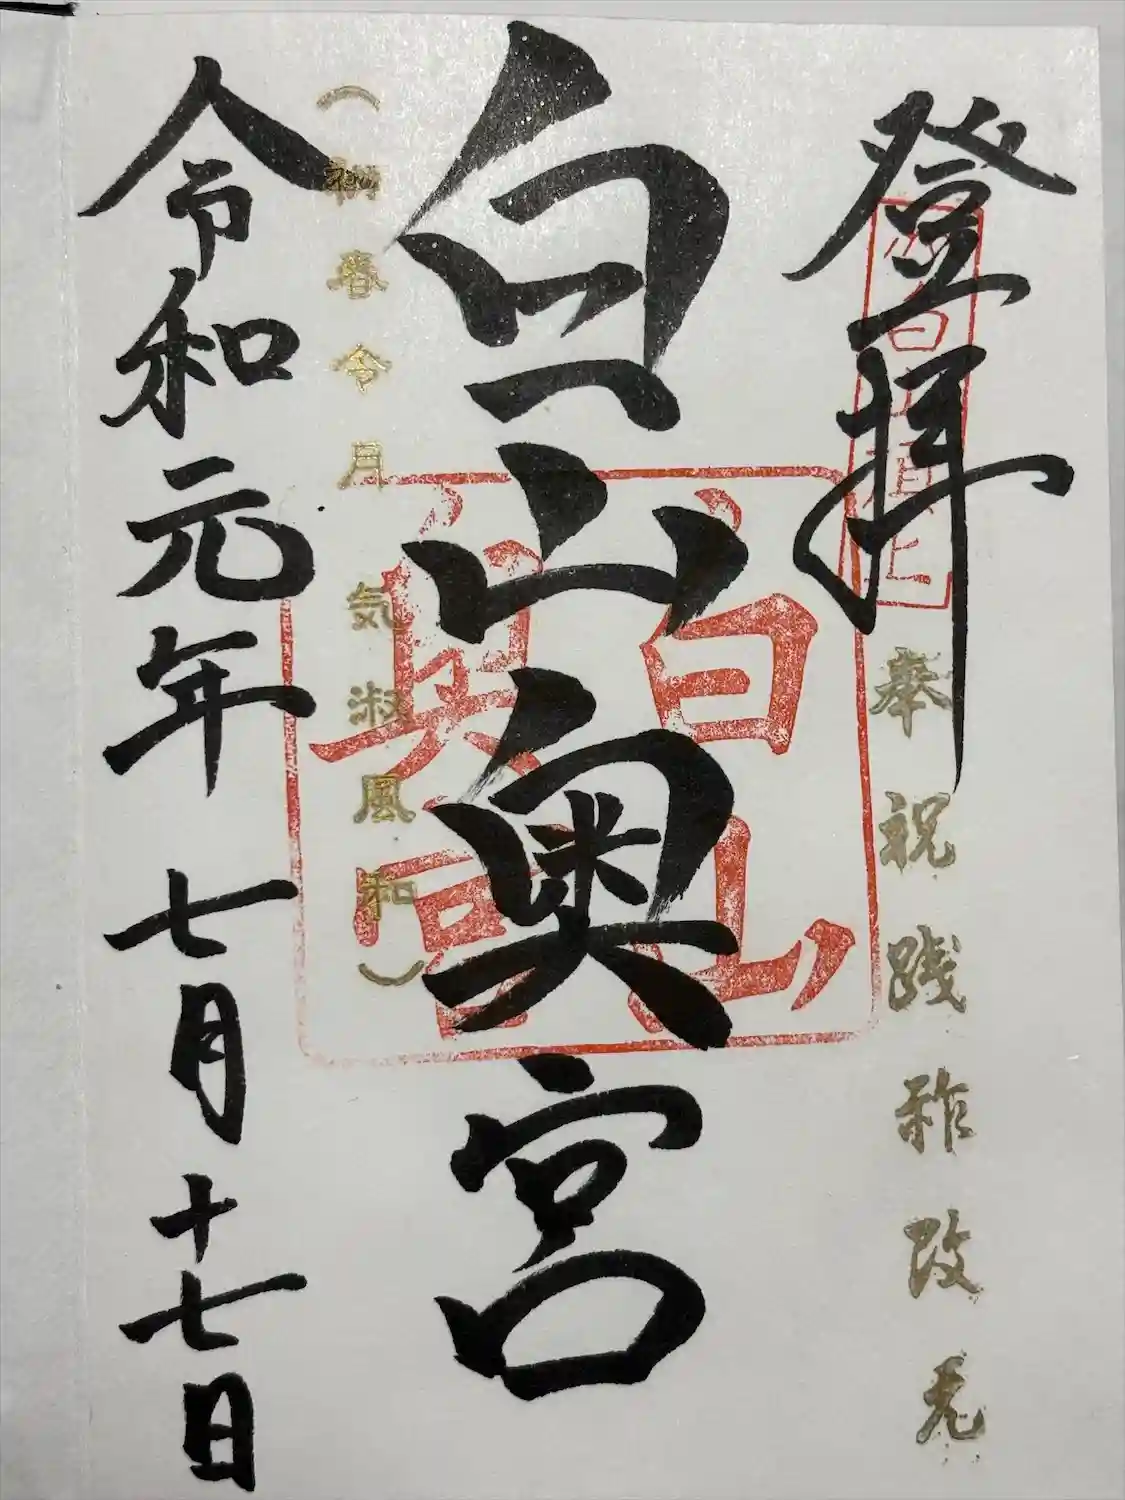 登拝
奉祝践祚改元
白山奥宮
白山
奥宮
(初春令月
気淑風和)
令和元年七月十七日